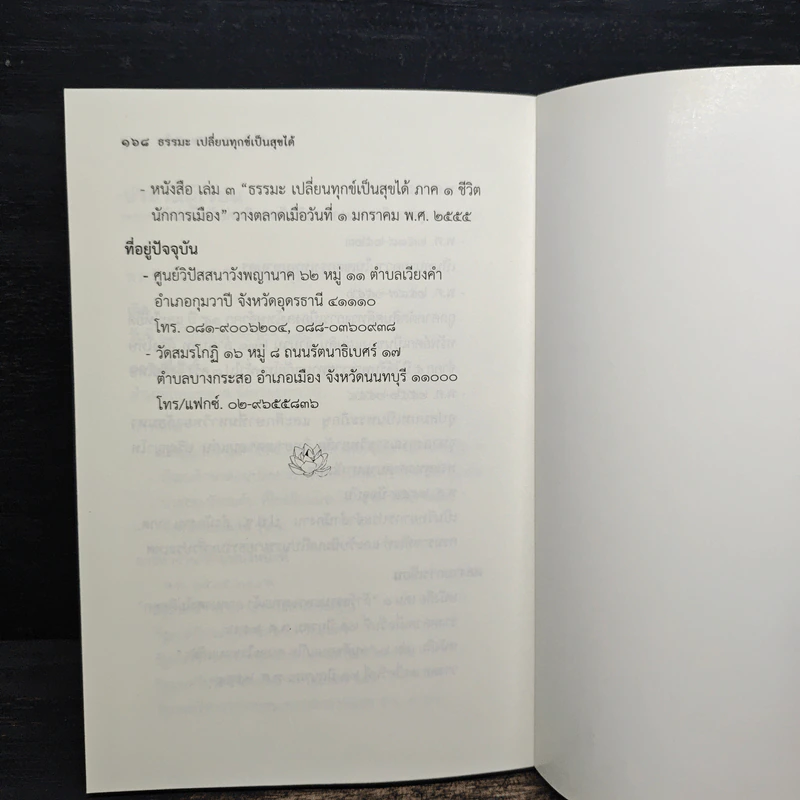 ๑๖๘ ธรรมะ เปลี่ยนทุกข์เป็นสุขได้
- หนังสือ เล่ม ๓ “ธรรมะ เปลี่ยนทุกข์เป็นสุขได้ ภาค ๑ ชีวิต
นักการเมือง” วางตลาดเมื่อวันที่ ๑ มกราคม พ.ศ. ๒๕๕๕
ที่อยู่ปัจจุบัน
- ศูนย์วิปัสสนาวังพญานาค ๖๒ หมู่ ๑๑ ตำบลเวียงคำ
อำเภอกุมวาปี จังหวัดอุดรธานี ๔๑๑๑๐
โทร. ๐๘๑-๙๐๐๖๒๐๔, ๐๘๘-๐๓๖๐๙๓๘
- วัดสมรโกฏิ ๑๖ หมู่ ๘ ถนนรัตนาธิเบศร์ ๑๗
ตำบลบางกระสอ อำเภอเมือง จังหวัดนนทบุรี ๑๑๐๐๐
โทร/แฟกซ์. ๐๒-๙๖๕๕๘๓๖